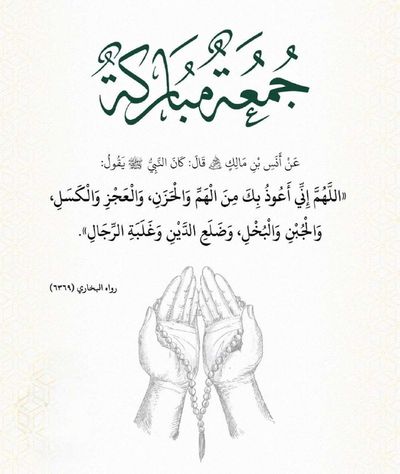 جُمُعَةٌ مُبَارَكَةٌ
عَنْ أَنَسِ بْنِ مَالِكٍ ﵁ قَالَ: كَانَ النَّبِيُّ ﷺ يَقُولُ:
«اللَّهُمَّ إِنِّي أَعُوذُ بِكَ مِنَ الْهَمِّ وَالْحَزَنِ، وَالْعَجْزِ وَالْكَسَلِ،
وَالْجُبْنِ وَالْبُخْلِ، وَضَلَعِ الدَّيْنِ وَغَلَبَةِ الرِّجَالِ».
رواه البخاري (٦٣٦٩)